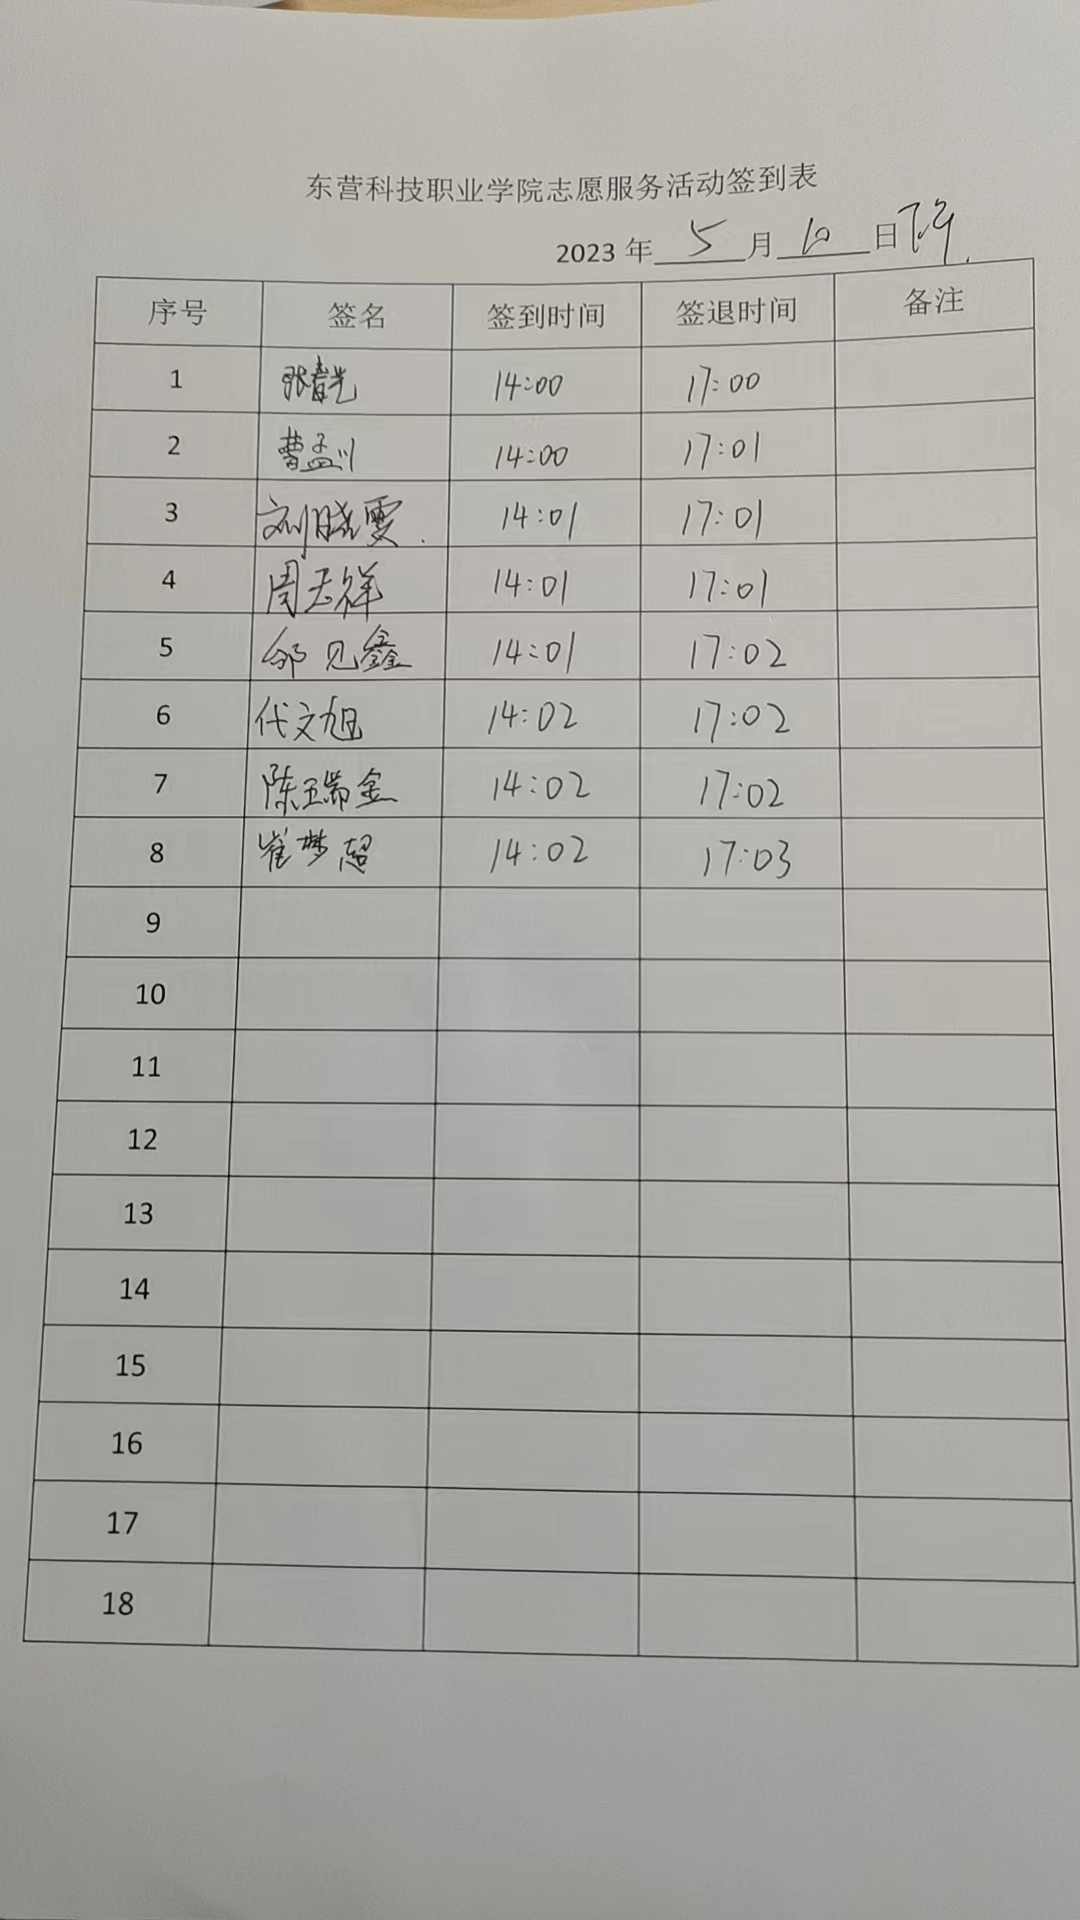 东营科技职业学院志愿服务活动签到表
2023 年 5 月 10 日 下午
序号 签名 签到时间 签退时间 备注
1 张春光 14:00 17:00
2 曹孟川 14:00 17:01
3 刘晓雯 14:01 17:01
4 周玉祥 14:01 17:01
5 邹见鑫 14:01 17:02
6 代文旭 14:02 17:02
7 陈瑞金 14:02 17:02
8 崔梦超 14:02 17:03
9
10
11
12
13
14
15
16
17
18